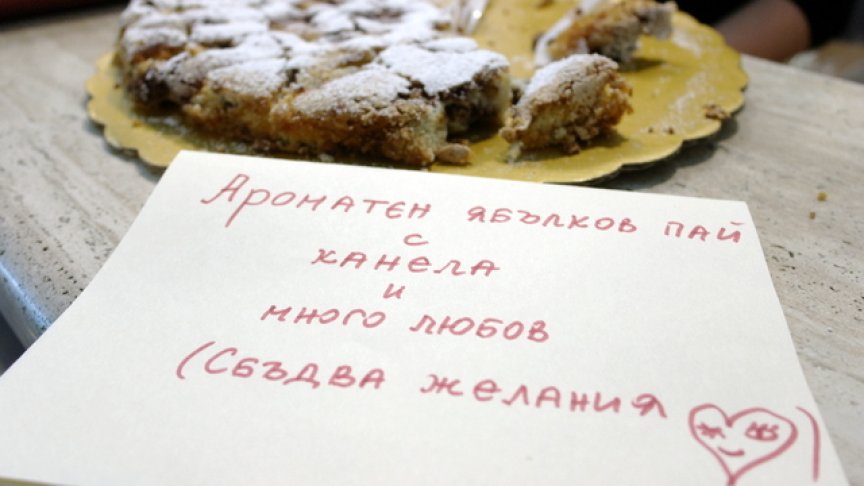 Ароматен ябълков пай
с
канела
и
много любов
(Сбъдва желания )